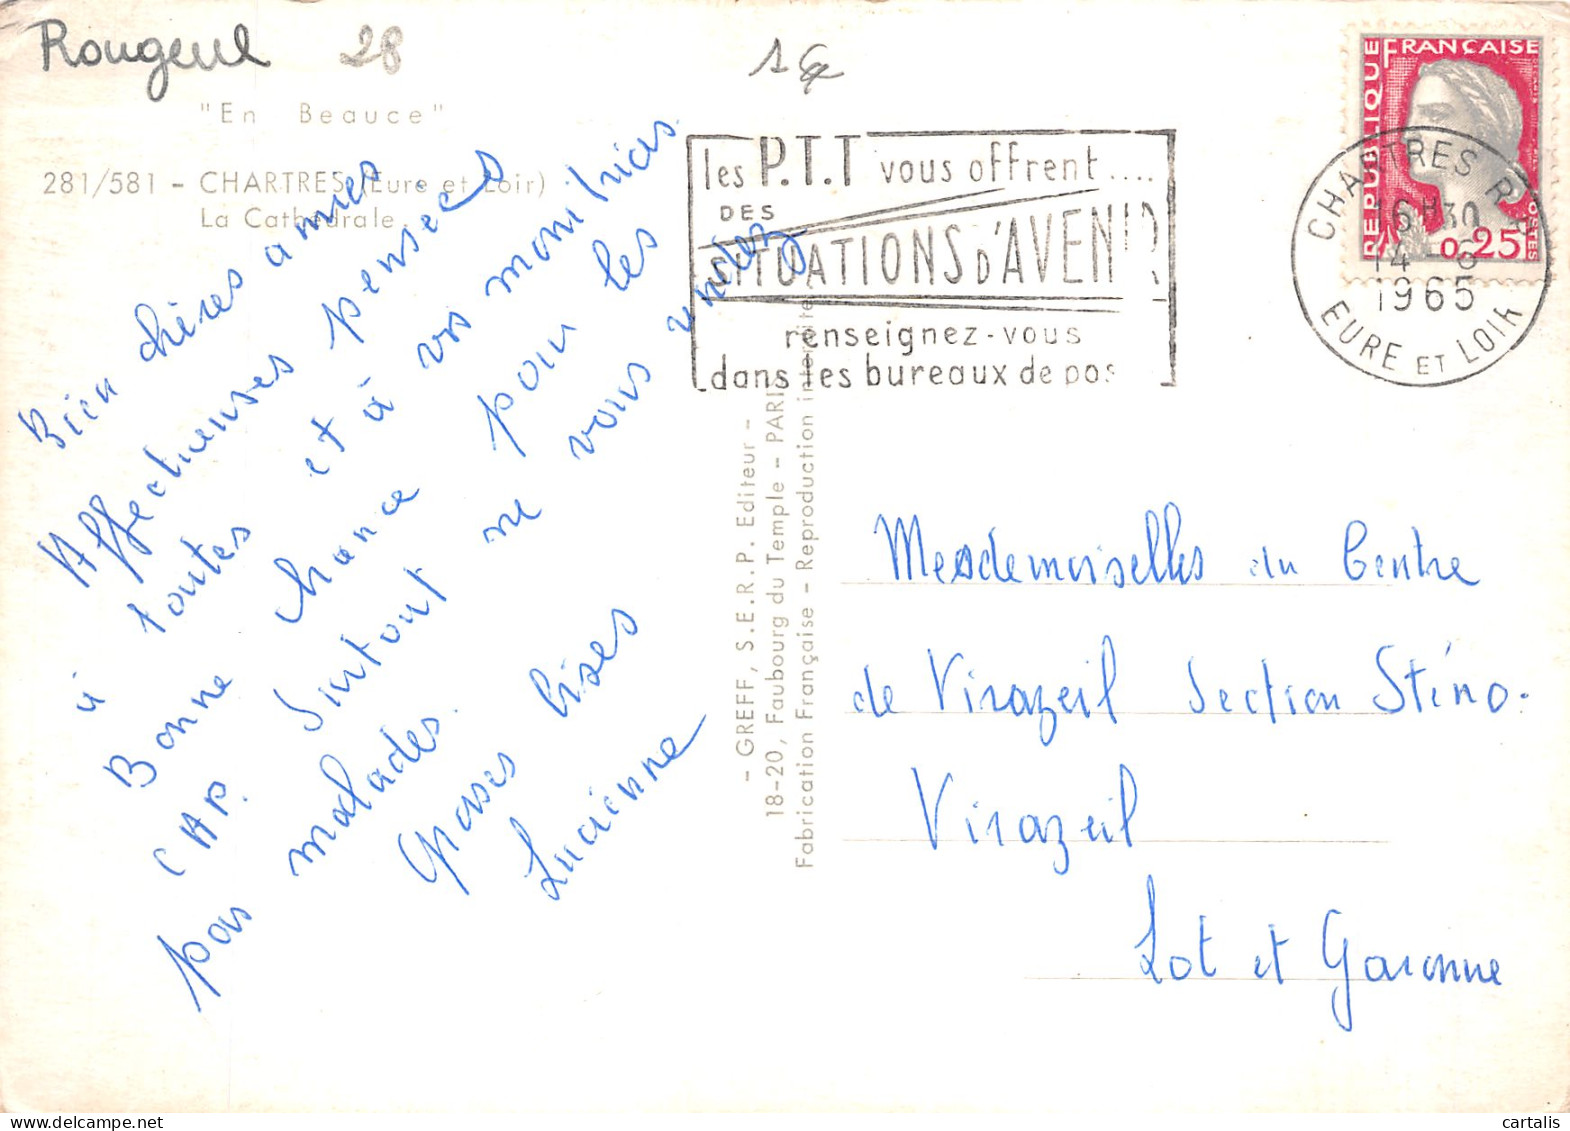 Rougeul 28
1 €
"En Beauce"
281/581 - CHARTRES (Eure et Loir)
La Cathédrale
Bien chères amies
Affectueuses pensées
à toutes et à vos monitrices.
Bonne chance pour les
CAP. Surtout ne vous rendez
pas malades.
Grosses bises
Lucienne
- GREFF, S.E.R.P. Editeur -
18-20, Faubourg du Temple - PARIS
Fabrication Française - Reproduction interdite
les P.T.T vous offrent....
DES
SITUATIONS D'AVENIR
renseignez-vous
dans les bureaux de pos
REPUBLIQUE FRANÇAISE
POSTES
0,25
CHARTRES R.P.
16H30
14 -6
1965
EURE ET LOIR
Mesdemoiselles du Centre
de Virazeil Section Sténo.
Virazeil
Lot et Garonne
www.delcampe.net
cartalis